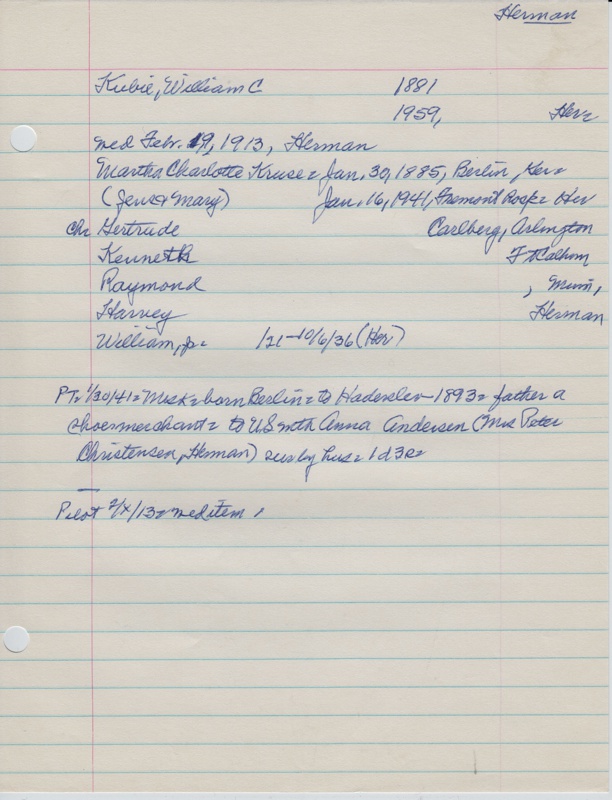 Herman
Kubie, William C 1881
1959, Her=
wed Febr. 19, 1913, Herman
Martha Charlotte Kruse= Jan. 30, 1885, Berlin, Ger=
(Jens & Mary) Jan. 16, 1941, Fremont Rockp= Her
Ch Gertrude Carlberg, Arlington
Kenneth Ft Calhoun
Raymond , Minn,
Harvey Herman
William, jr= /21-10/6/36 (Her)
PT= 1/30/41= Mrs K= born Berlin= to Haderslev 1893= father a
shoemerchant= to US with Anna Andersen (Mrs Peter
Christensen, Herman) sur by hus= 1d 3s=
Pilot 2/x/13= wed item,